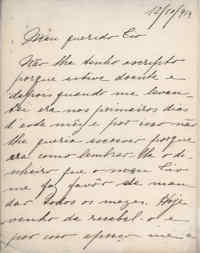 12/10/919
Meu querido Tio
Não lhe tenho escripto
porque estive doente e
depois quando me levan-
tei era nos primeiros dias
d'este mêz e por isso não
lhe queria escrever porque
era como lembrar-lhe o di-
nheiro que o meu Tio
me faz favôr de man-
dar todos os mezes. Hoje
venho de recebel-o e
por isso apresso-me a